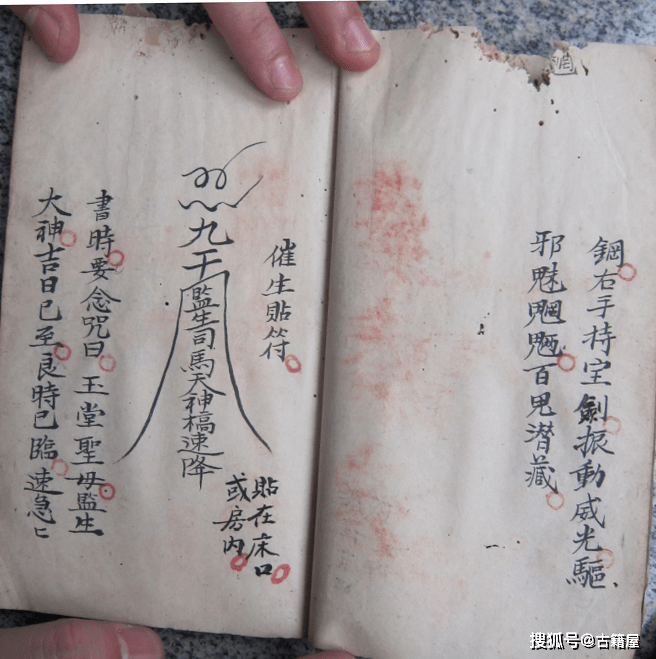 鋼右手持宝劍振動威光驅
邪魅魍魎百鬼潛藏
催生貼符
貼在床口
或房内
九天
監生司馬天神槁速降
書時要念咒曰玉堂聖母監生
大神吉日已至良時已臨速急〻
搜狐号@古籍屋